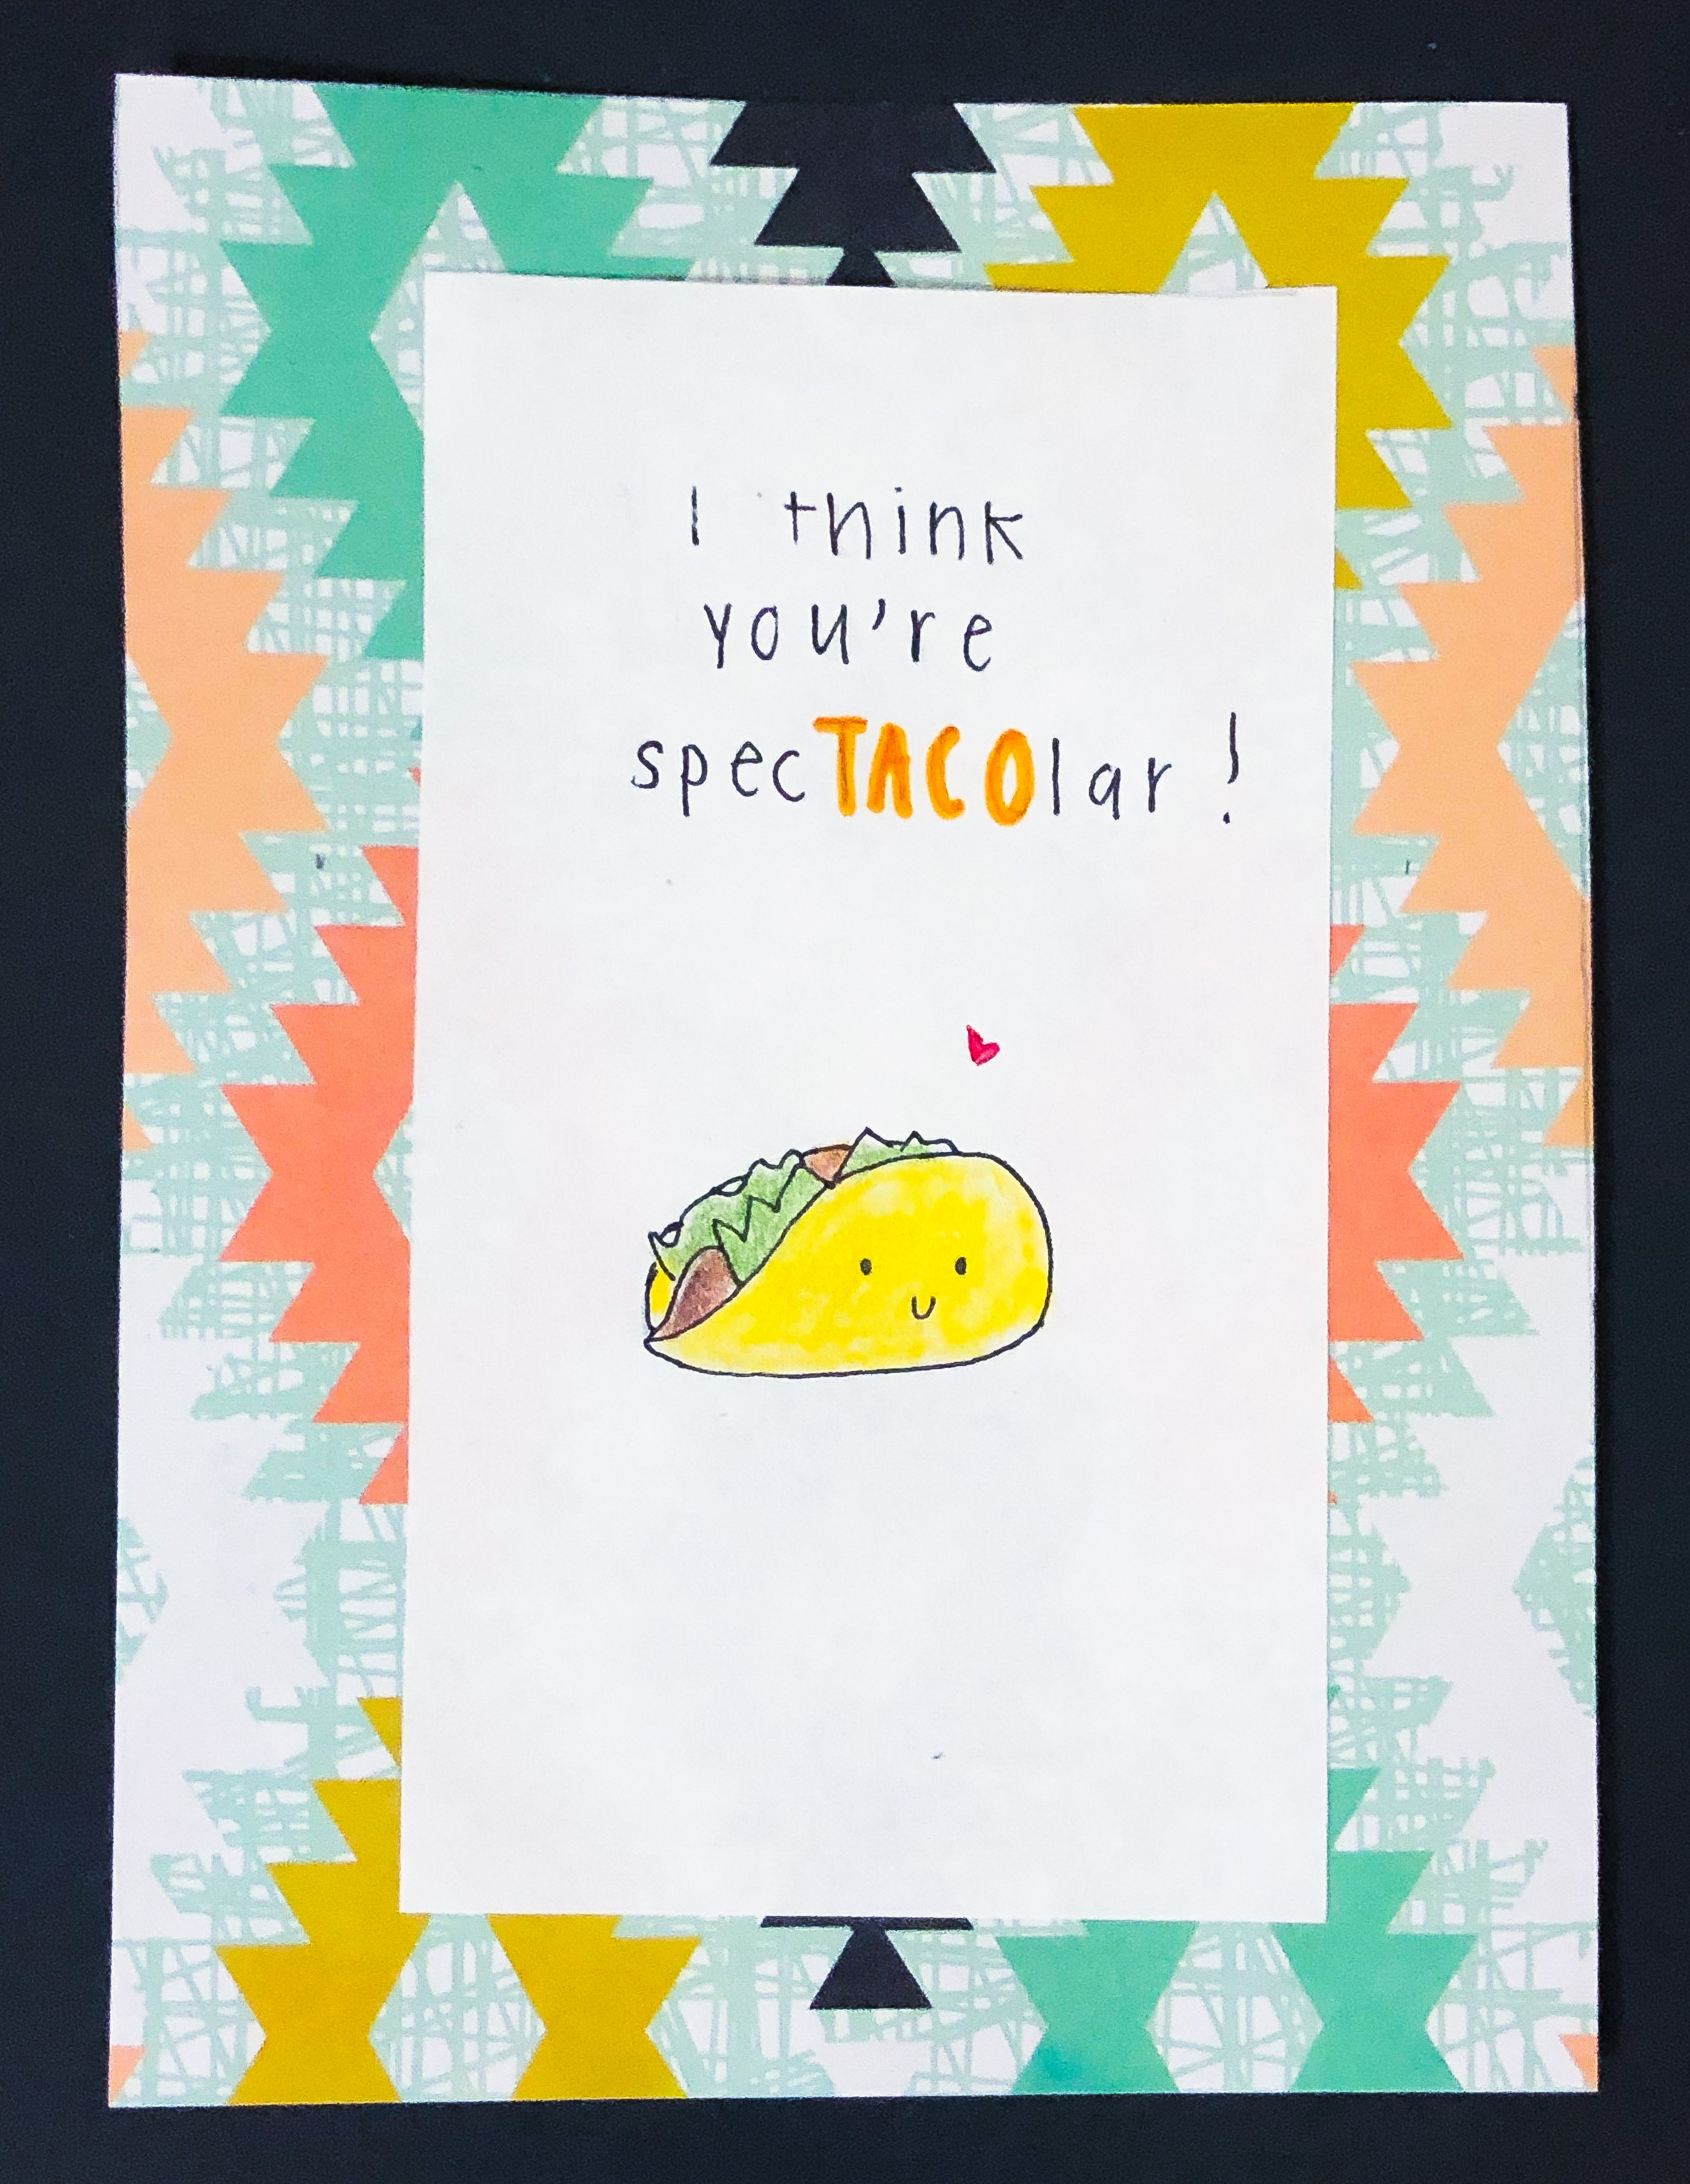 I think
you're
specTACOlar!